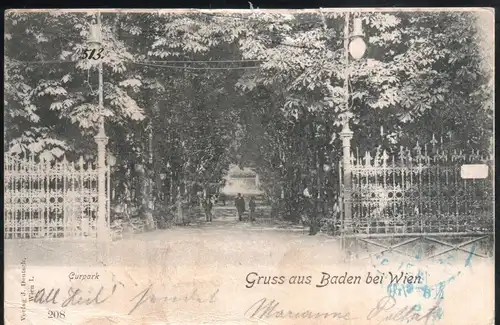 513.
Curpark
Gruss aus Baden bei Wien
Verlag J. Deutsch,
Wien I.
All Heil sendet Marianne
208